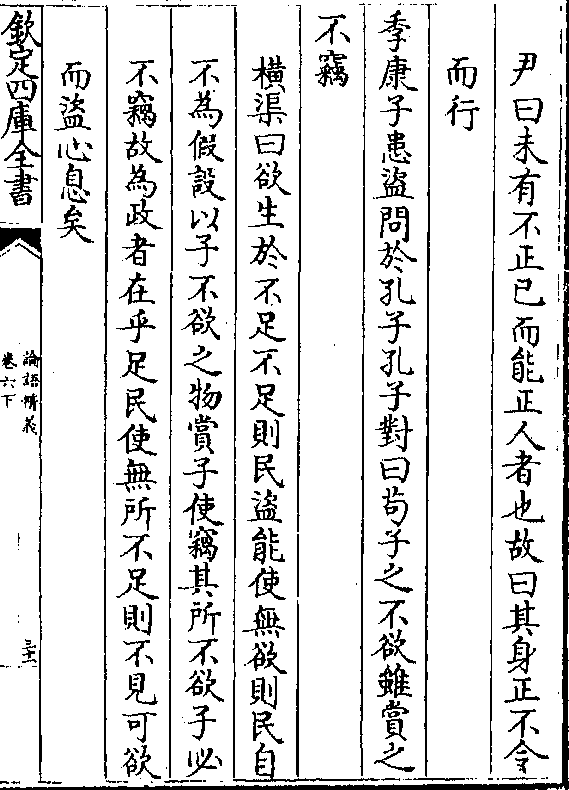 尹曰未有不正已而能正人者也故曰其身正不令
而行
季康子患盜問於孔子孔子對曰苟子之不欲雖賞之
不竊
橫渠曰欲生於不足不足則民盜能使無欲則民自
不為假設以子不欲之物賞子使竊其所不欲子必
不竊故為政者在乎足民使無所不足則不見可欲
而盜心息矣
欽定四庫全書
論語精義
卷六下
三十二